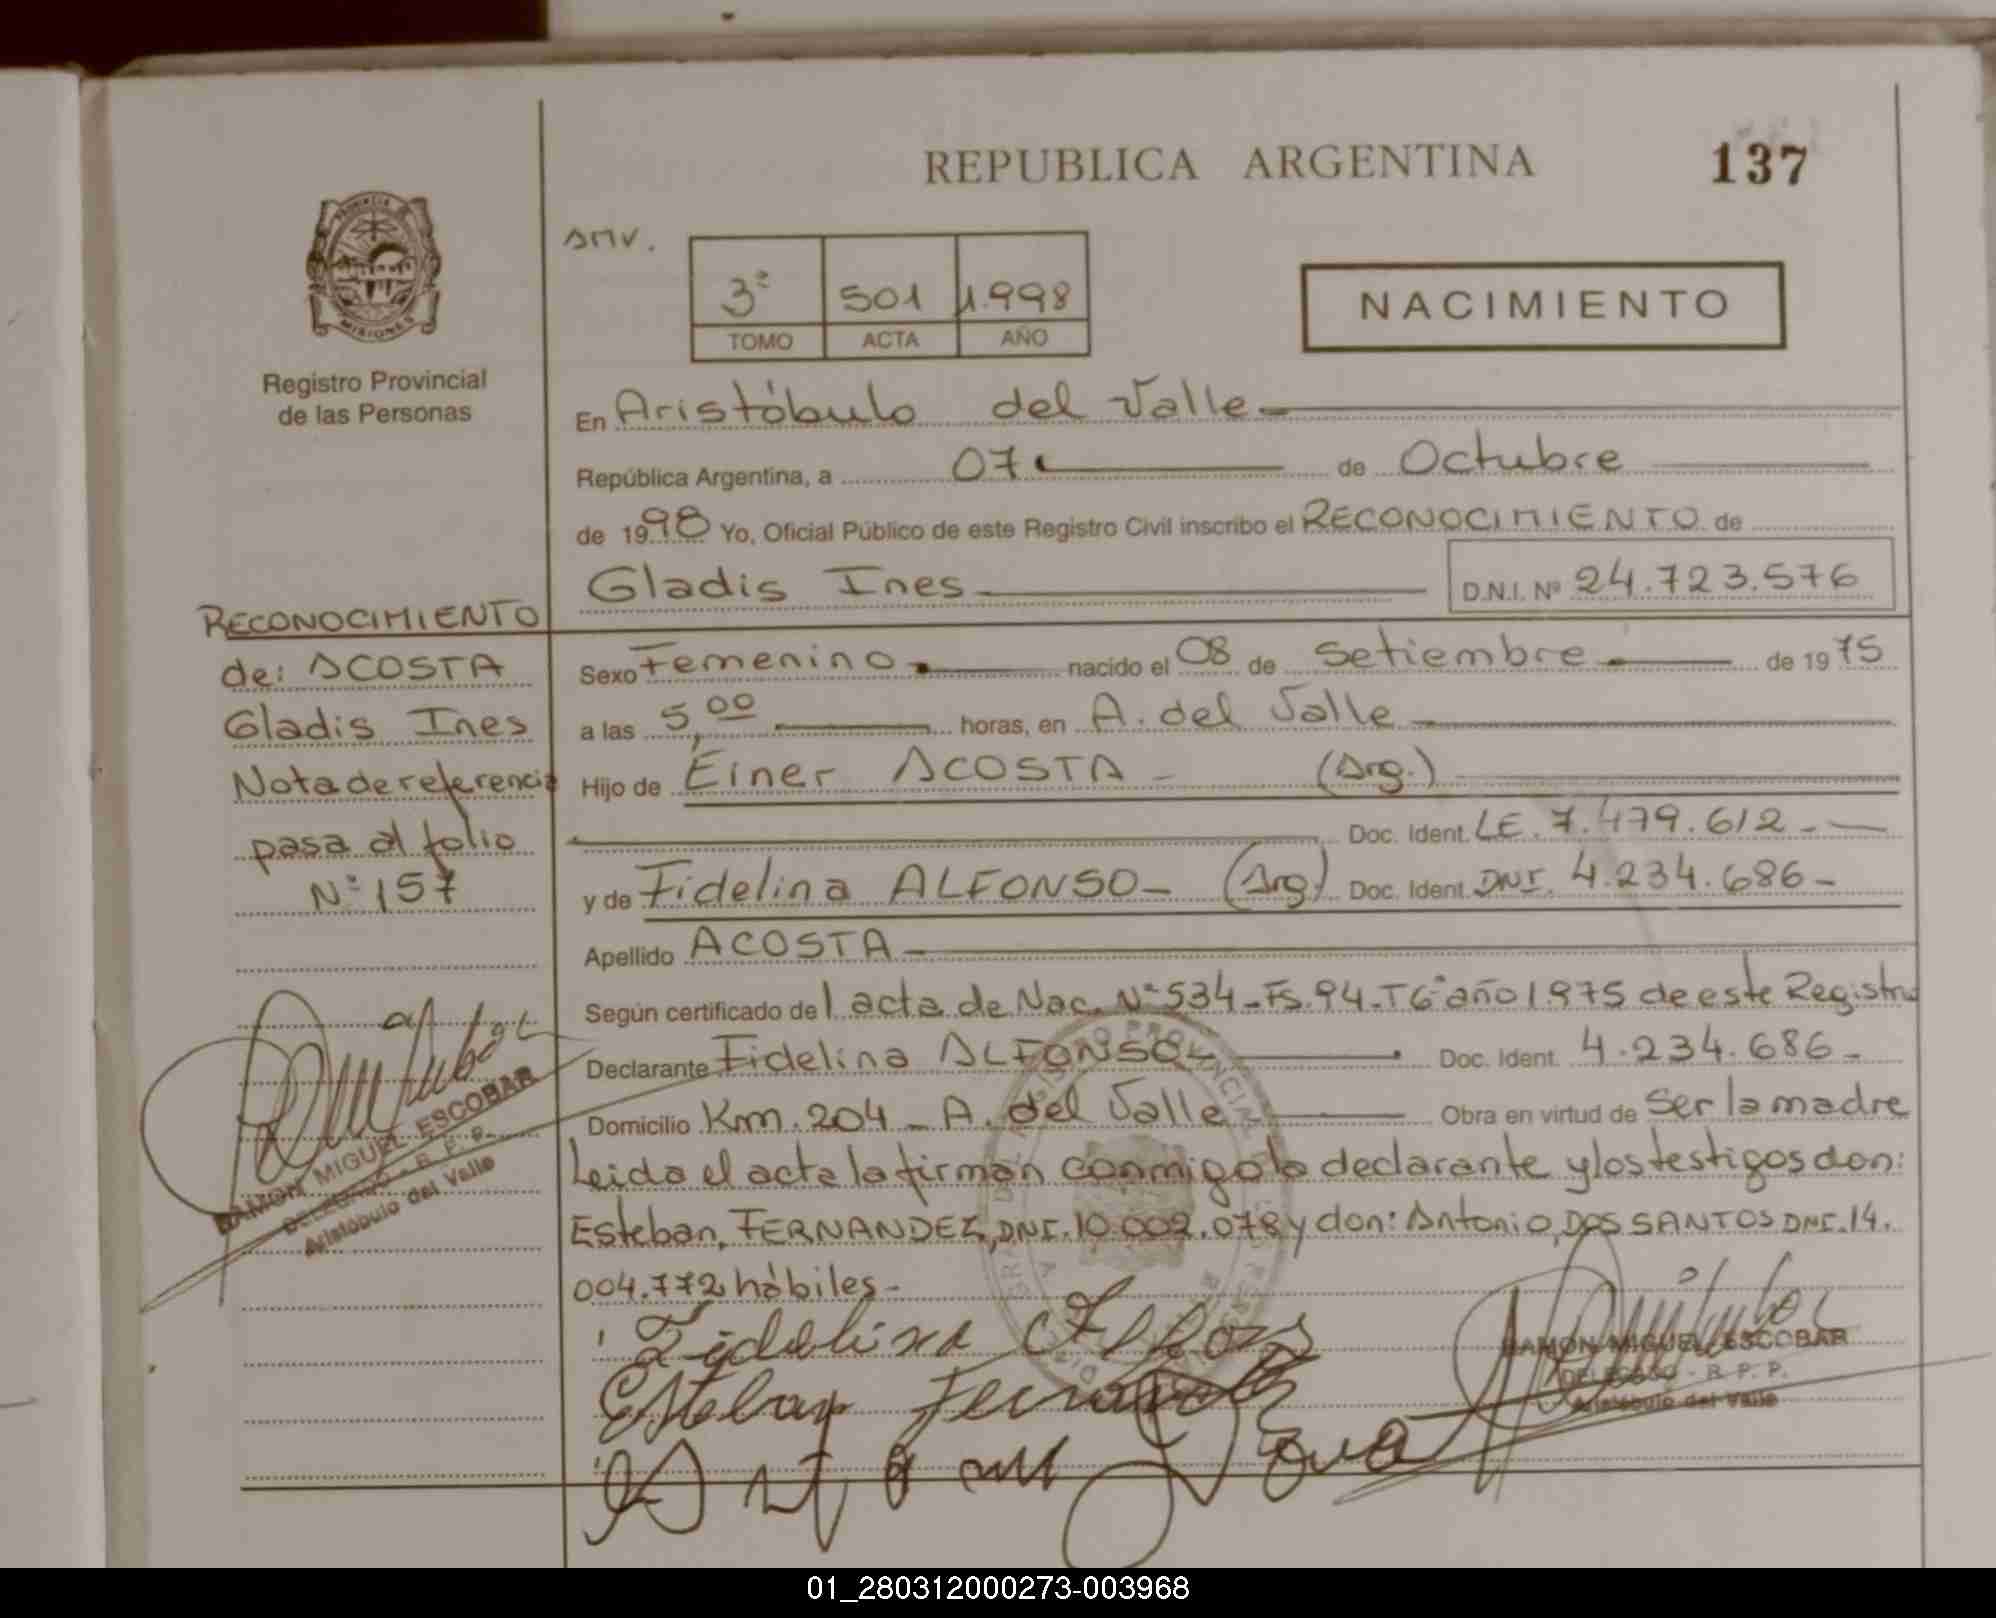 REPUBLICA ARGENTINA
137
PROVINCIA DE
MISIONES
Registro Provincial
de las Personas
AMV.
3º 501 1.998
TOMO ACTA AÑO
NACIMIENTO
En Aristóbulo del Valle
República Argentina, a 07 de Octubre
de 1998 Yo, Oficial Público de este Registro Civil inscribo el RECONOCIMIENTO de
Gladis Ines D.N.I. Nº 24.723.576
RECONOCIMIENTO
de: ACOSTA
Gladis Ines
Nota de referencia
pasa al folio
Nº 157
Sexo Femenino nacido el 08 de Setiembre de 1975
a las 5,00 horas, en A. del Valle
Hijo de Einer ACOSTA - (Arg.)
Doc. Ident. LE. 7.479.612 -
y de Fidelina ALFONSO - (Arg) Doc. Ident. DNI. 4.234.686 -
Apellido ACOSTA
Según certificado del acta de Nac. Nº 534 - Fs. 94 - T6º año 1.975 de este Registro
Declarante Fidelina ALFONSO Doc. Ident. 4.234.686 -
Domicilio Km. 204 - A. del Valle Obra en virtud de Ser la madre
Leida el acta la firman conmigo la declarante y los testigos don:
Esteban, FERNANDEZ, DNI. 10.002.078 y don: Antonio, DOS SANTOS DNI. 14.
004.772 hábiles -
RAMON MIGUEL ESCOBAR
DELEGADO - R. P. P.
Aristóbulo del Valle
Fidelina
Esteban Fernandez
RAMON MIGUEL ESCOBAR
DELEGADO - R. P. P.
Aristóbulo del Valle
01_280312000273-003968